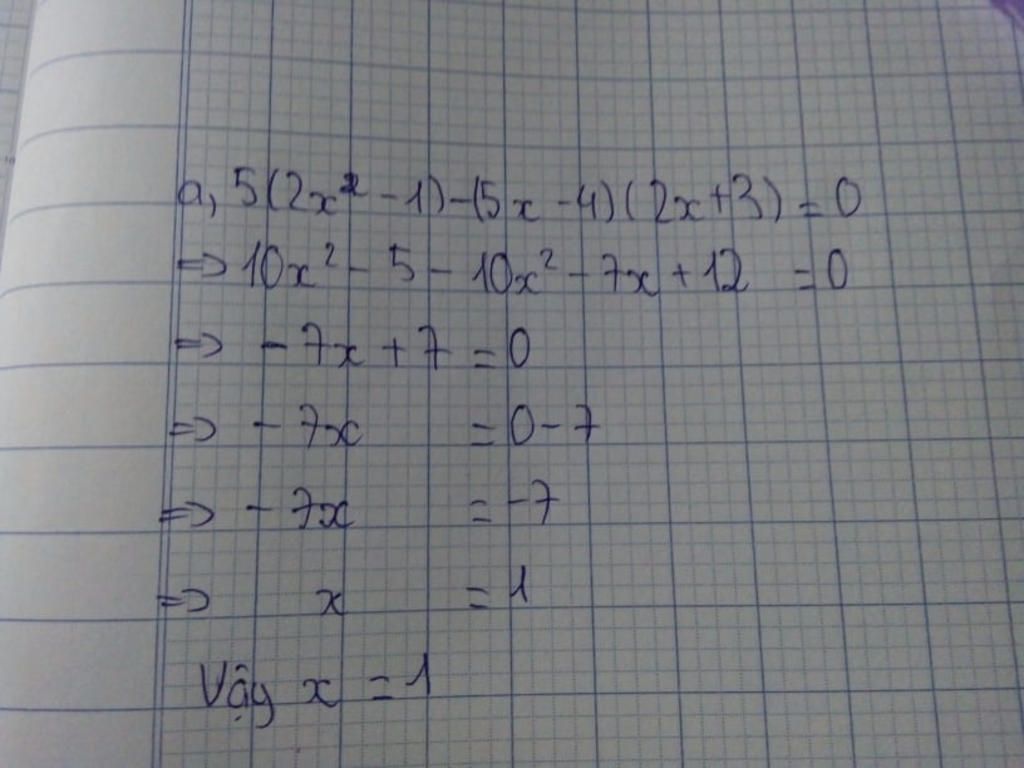 a, 5(2x² - 1) - (5x - 4)(2x + 3) = 0
=> 10x² - 5 - 10x² - 7x + 12 = 0
=> - 7x + 7 = 0
=> - 7x = 0 - 7
=> - 7x = -7
=> x = 1
Vậy x = 1